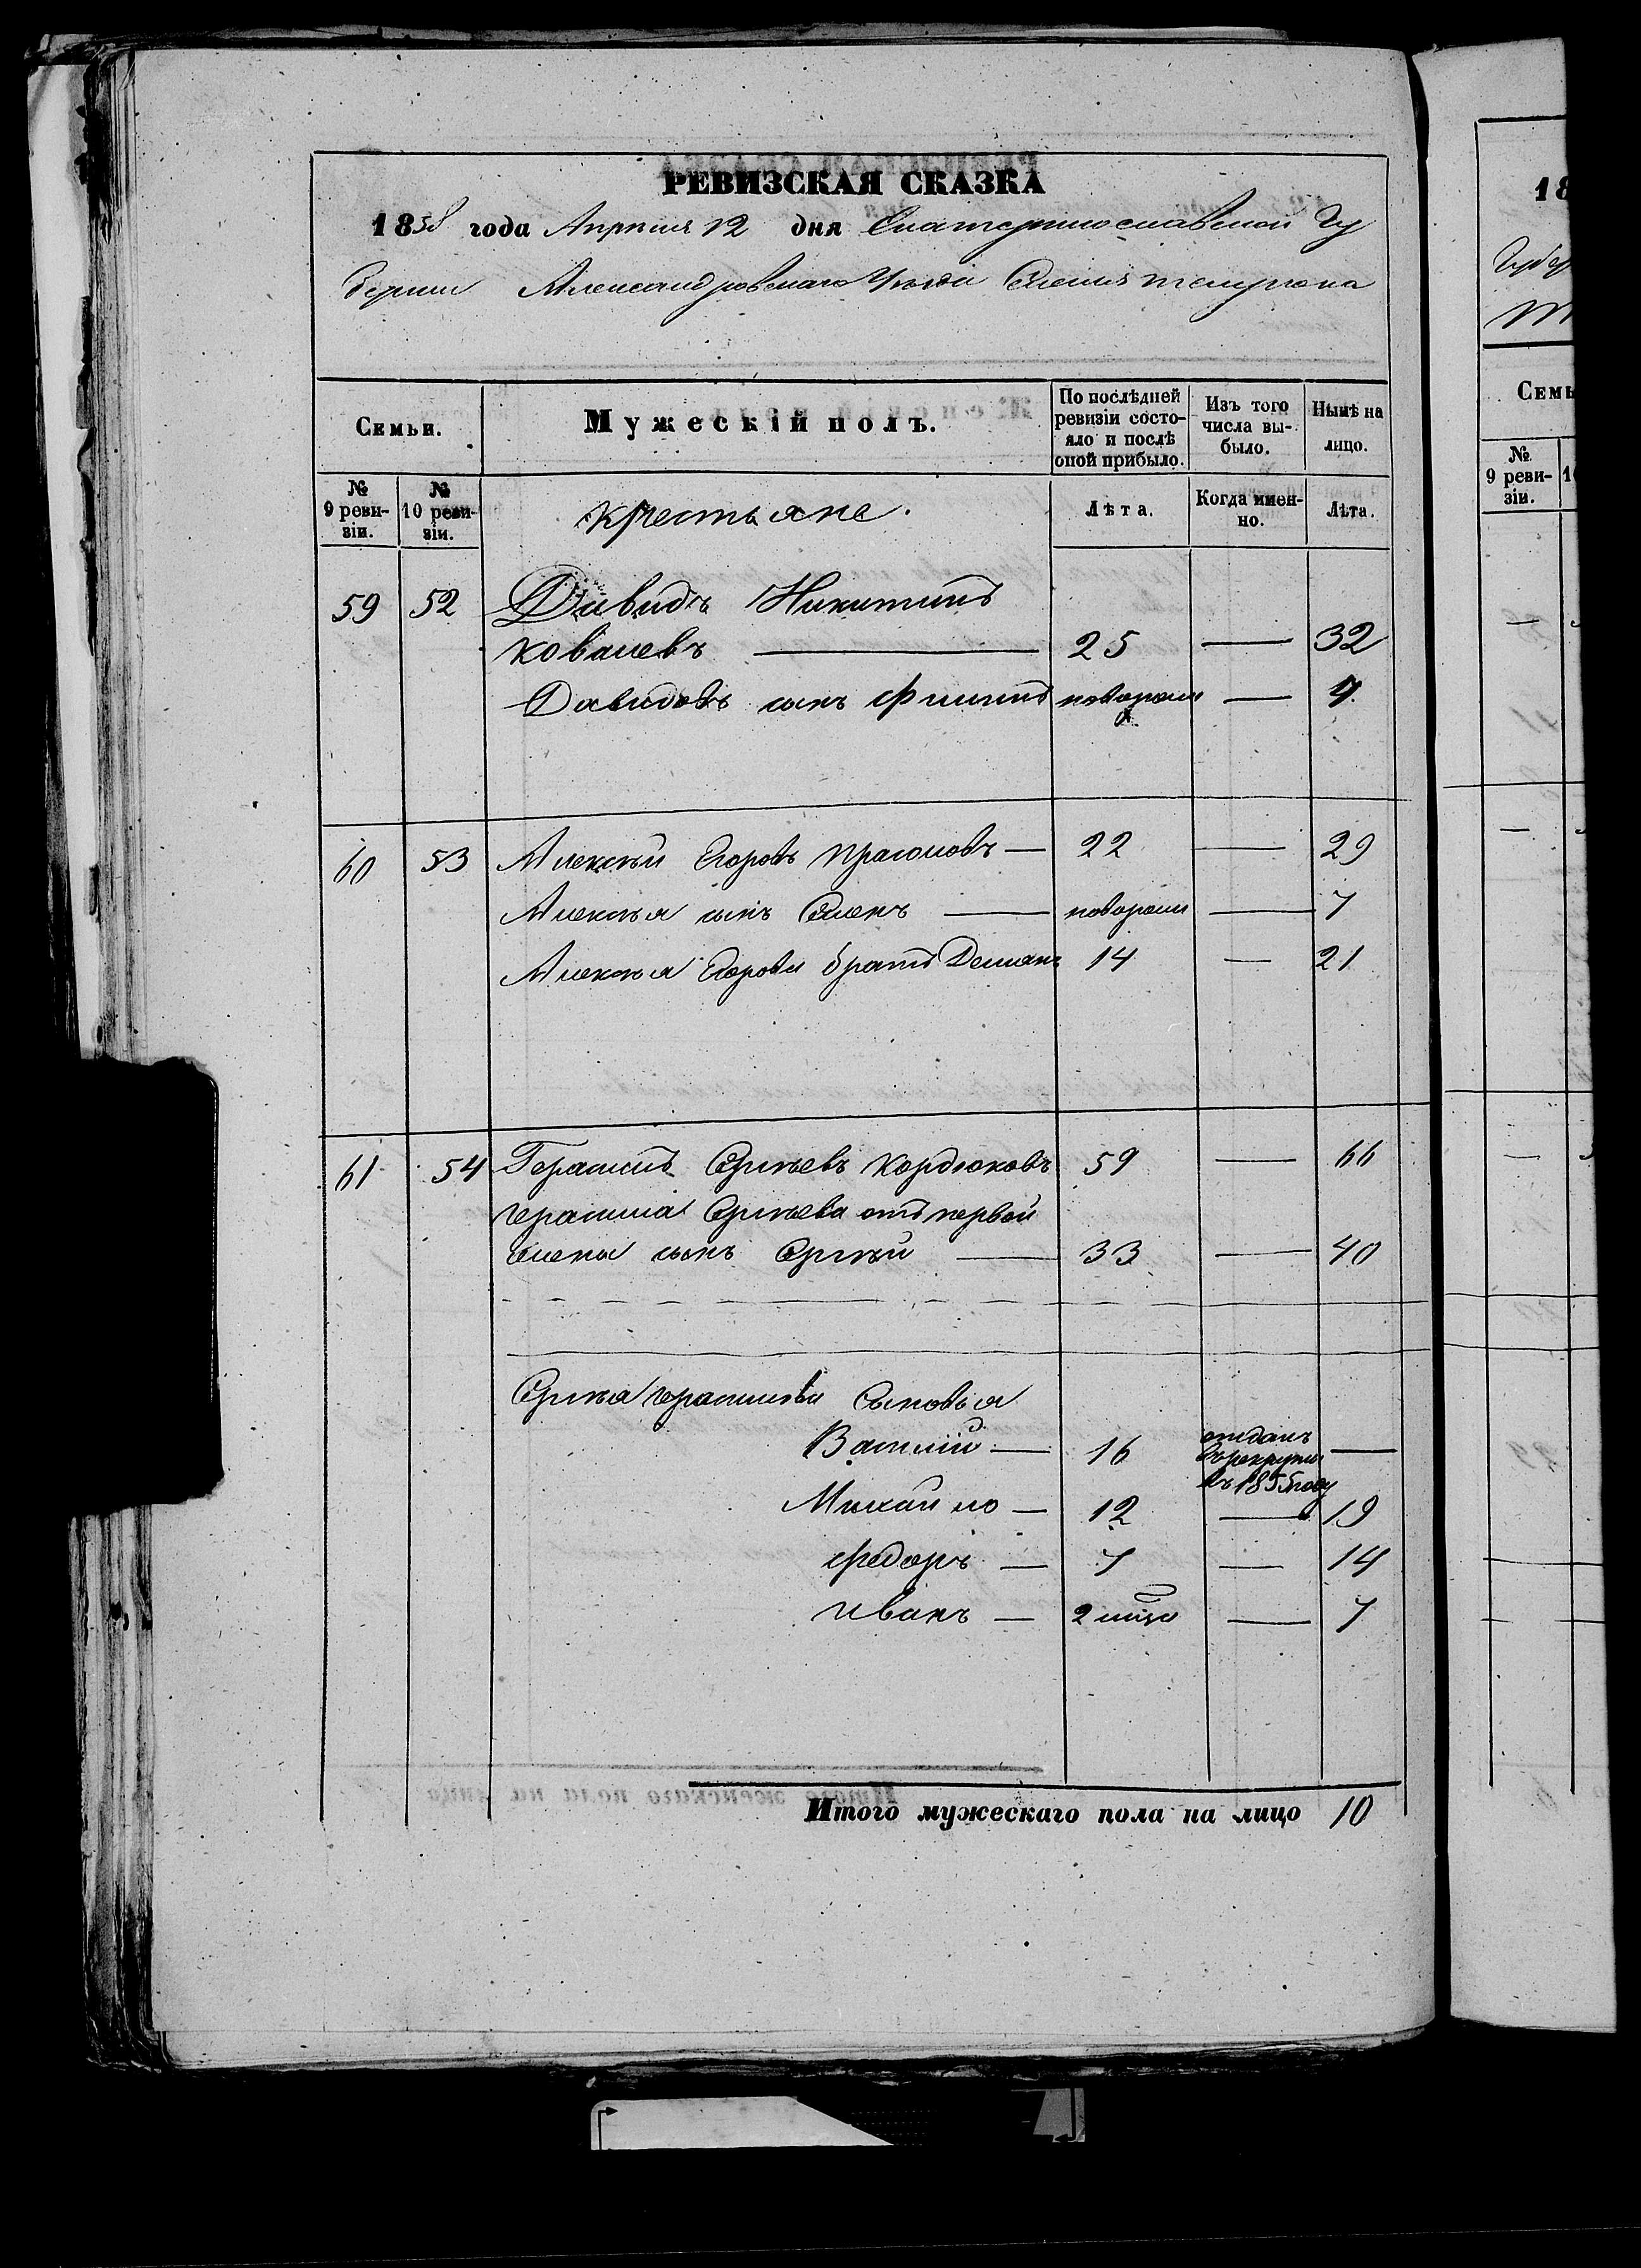 РЕВИЗСКАЯ СКАЗКА
1858 года Апреля 12 дня Екатеринославской Гу
бернии Александровскаго Уѣзда Селенія темрюка
Семьи. Мужескій полъ. По послѣдней ревизіи состояло и послѣ оной прибыло. Изъ того числа выбыло. Нынѣ на лицо.
№ 9 ревизіи. № 10 ревизіи. крестьяне. Лѣта. Когда именно. Лѣта.
59 52 Давидъ Никитинъ
ковалевъ — 25 — 32
Давидовъ сынъ Филипъ новорожд — 7
60 53 Алексѣй Егоровъ — 22 — 29
Алексѣя сынъ Семенъ — новорожд — 7
Алексѣя Егорова братъ Демянъ 14 — 21
61 54 Герасимъ Сергѣевъ кордюковъ 59 — 66
герасима Сергѣева отъ первой
жены сынъ Сергѣй — 33 — 40
Сергѣя герасимова Сыновья
Василій — 16 отданъ
въ рекруты —
въ 1855 году
Михайло — 12 — 19
федоръ — 7 — 14
иванъ — 2 мѣся — 7
Итого мужескаго пола на лицо 10
18
Губер
Семь
№ 9 ревизіи.